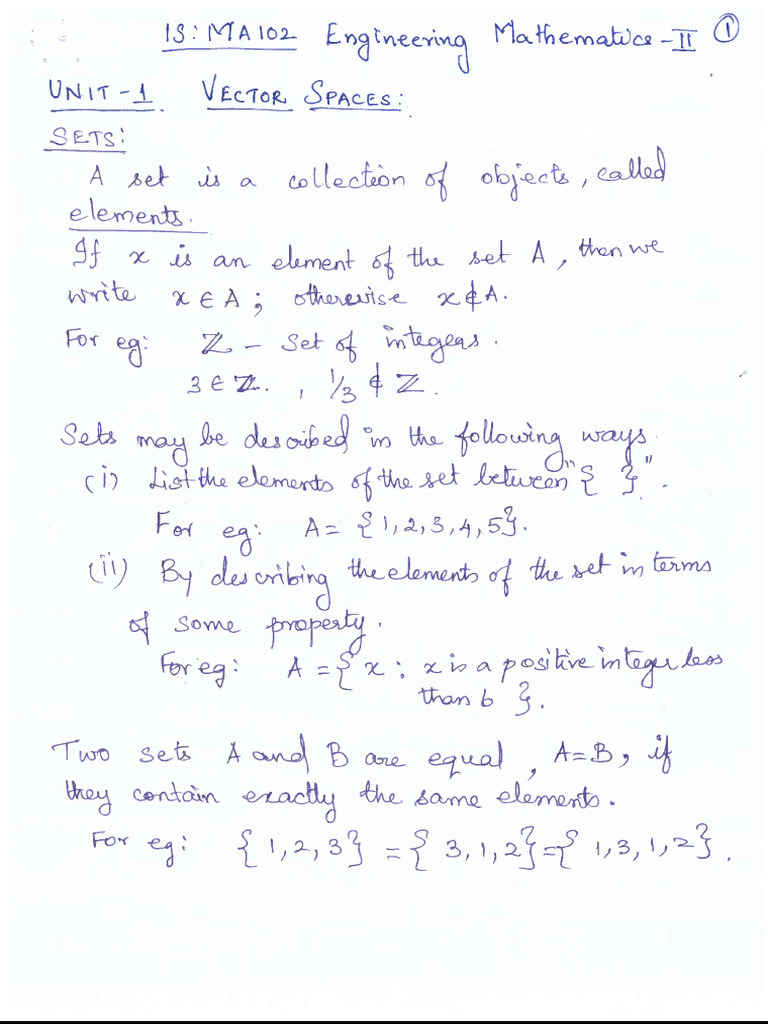 15:MA102 Engineering Mathematics-II ①
UNIT-1. VECTOR SPACES:
SETS:
A set is a collection of objects, called
elements.
If x is an element of the set A, then we
write x ∈ A; otherwise x ∉ A.
For eg: ℤ - Set of integers.
3 ∈ ℤ. , 1/3 ∉ ℤ.
Sets may be described in the following ways
(i) List the elements of the set between "{ }".
For eg: A = {1,2,3,4,5}.
(ii) By describing the elements of the set in terms
of some property.
For eg: A = { x : x is a positive integer less
than 6 }.
Two sets A and B are equal, A=B, if
they contain exactly the same elements.
For eg: {1,2,3} = {3,1,2} = {1,3,1,2}.